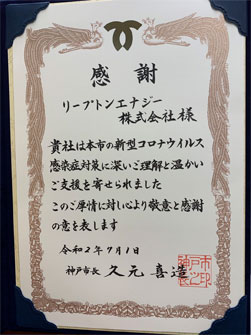 感謝
リープトンエナジー
株式会社様
貴社は本市の新型コロナウイルス
感染症対策に深いご理解と温かい
ご支援を寄せられました
このご厚情に対し心より敬意と感謝
の意を表します
令和2年7月1日
神戸市長 久元喜造